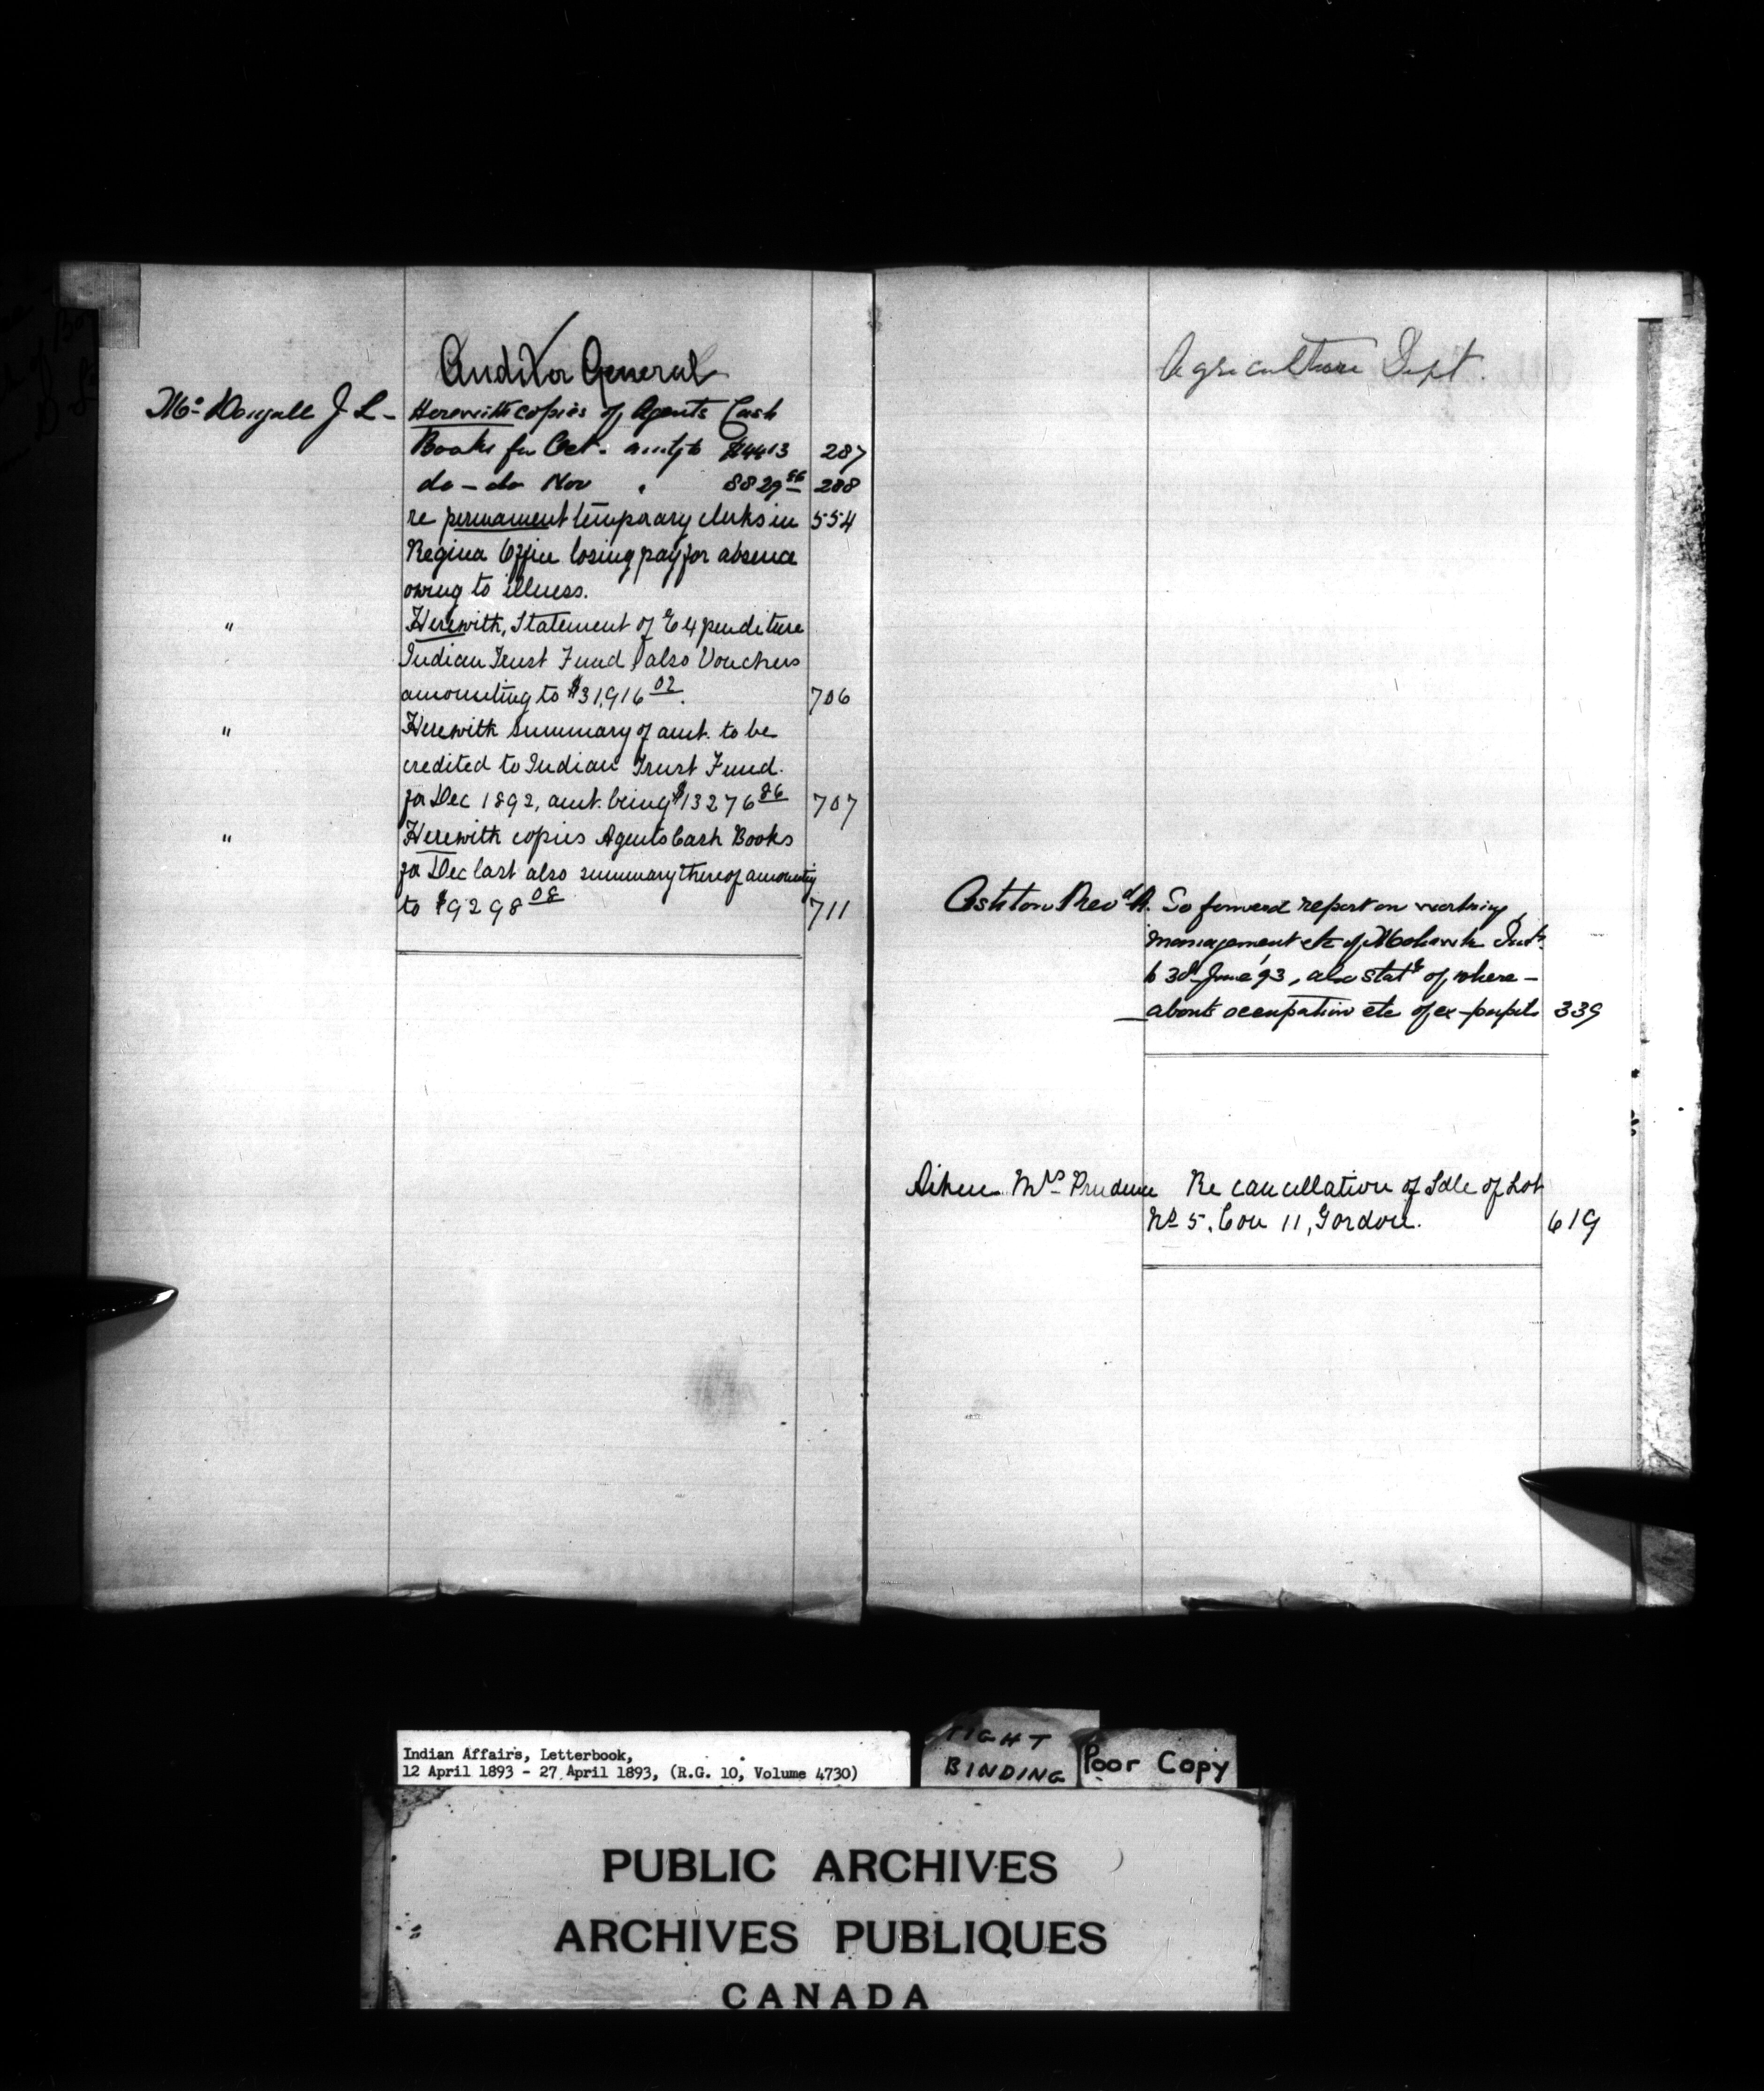 Auditor General
Mc Dougall J L - Herewith copies of Agents Cash
Books for Oct. amtg to $4413 287
do - do Nov " 8829 86 288
re permanent temporary clerks in 554
Regina Office losing pay for absence
owing to illness.
" Herewith, Statement of Expenditure
Indian Trust Fund also Vouchers
amounting to $31,916 02. 706
" Herewith Summary of amt. to be
credited to Indian Trust Fund.
for Dec 1892, amt. being $13276 86 707
" Herewith copies Agents Cash Books
for Dec last also summary thereof amounting
to $9298 08 711
Agriculture Dept.
Ashton Revd A. To forward report on working,
management etc of Mohawk Inst.
to 30 June '93, also statt of where-
abouts occupation etc of ex-pupils 339
Aiken Mrs Prudence Re cancellation of Sale of Lot
No 5, Con 11, Gordon. 619
Indian Affairs, Letterbook,
12 April 1893 - 27 April 1893, (R.G. 10, Volume 4730)
TIGHT
BINDING
Poor Copy
PUBLIC ARCHIVES
ARCHIVES PUBLIQUES
CANADA